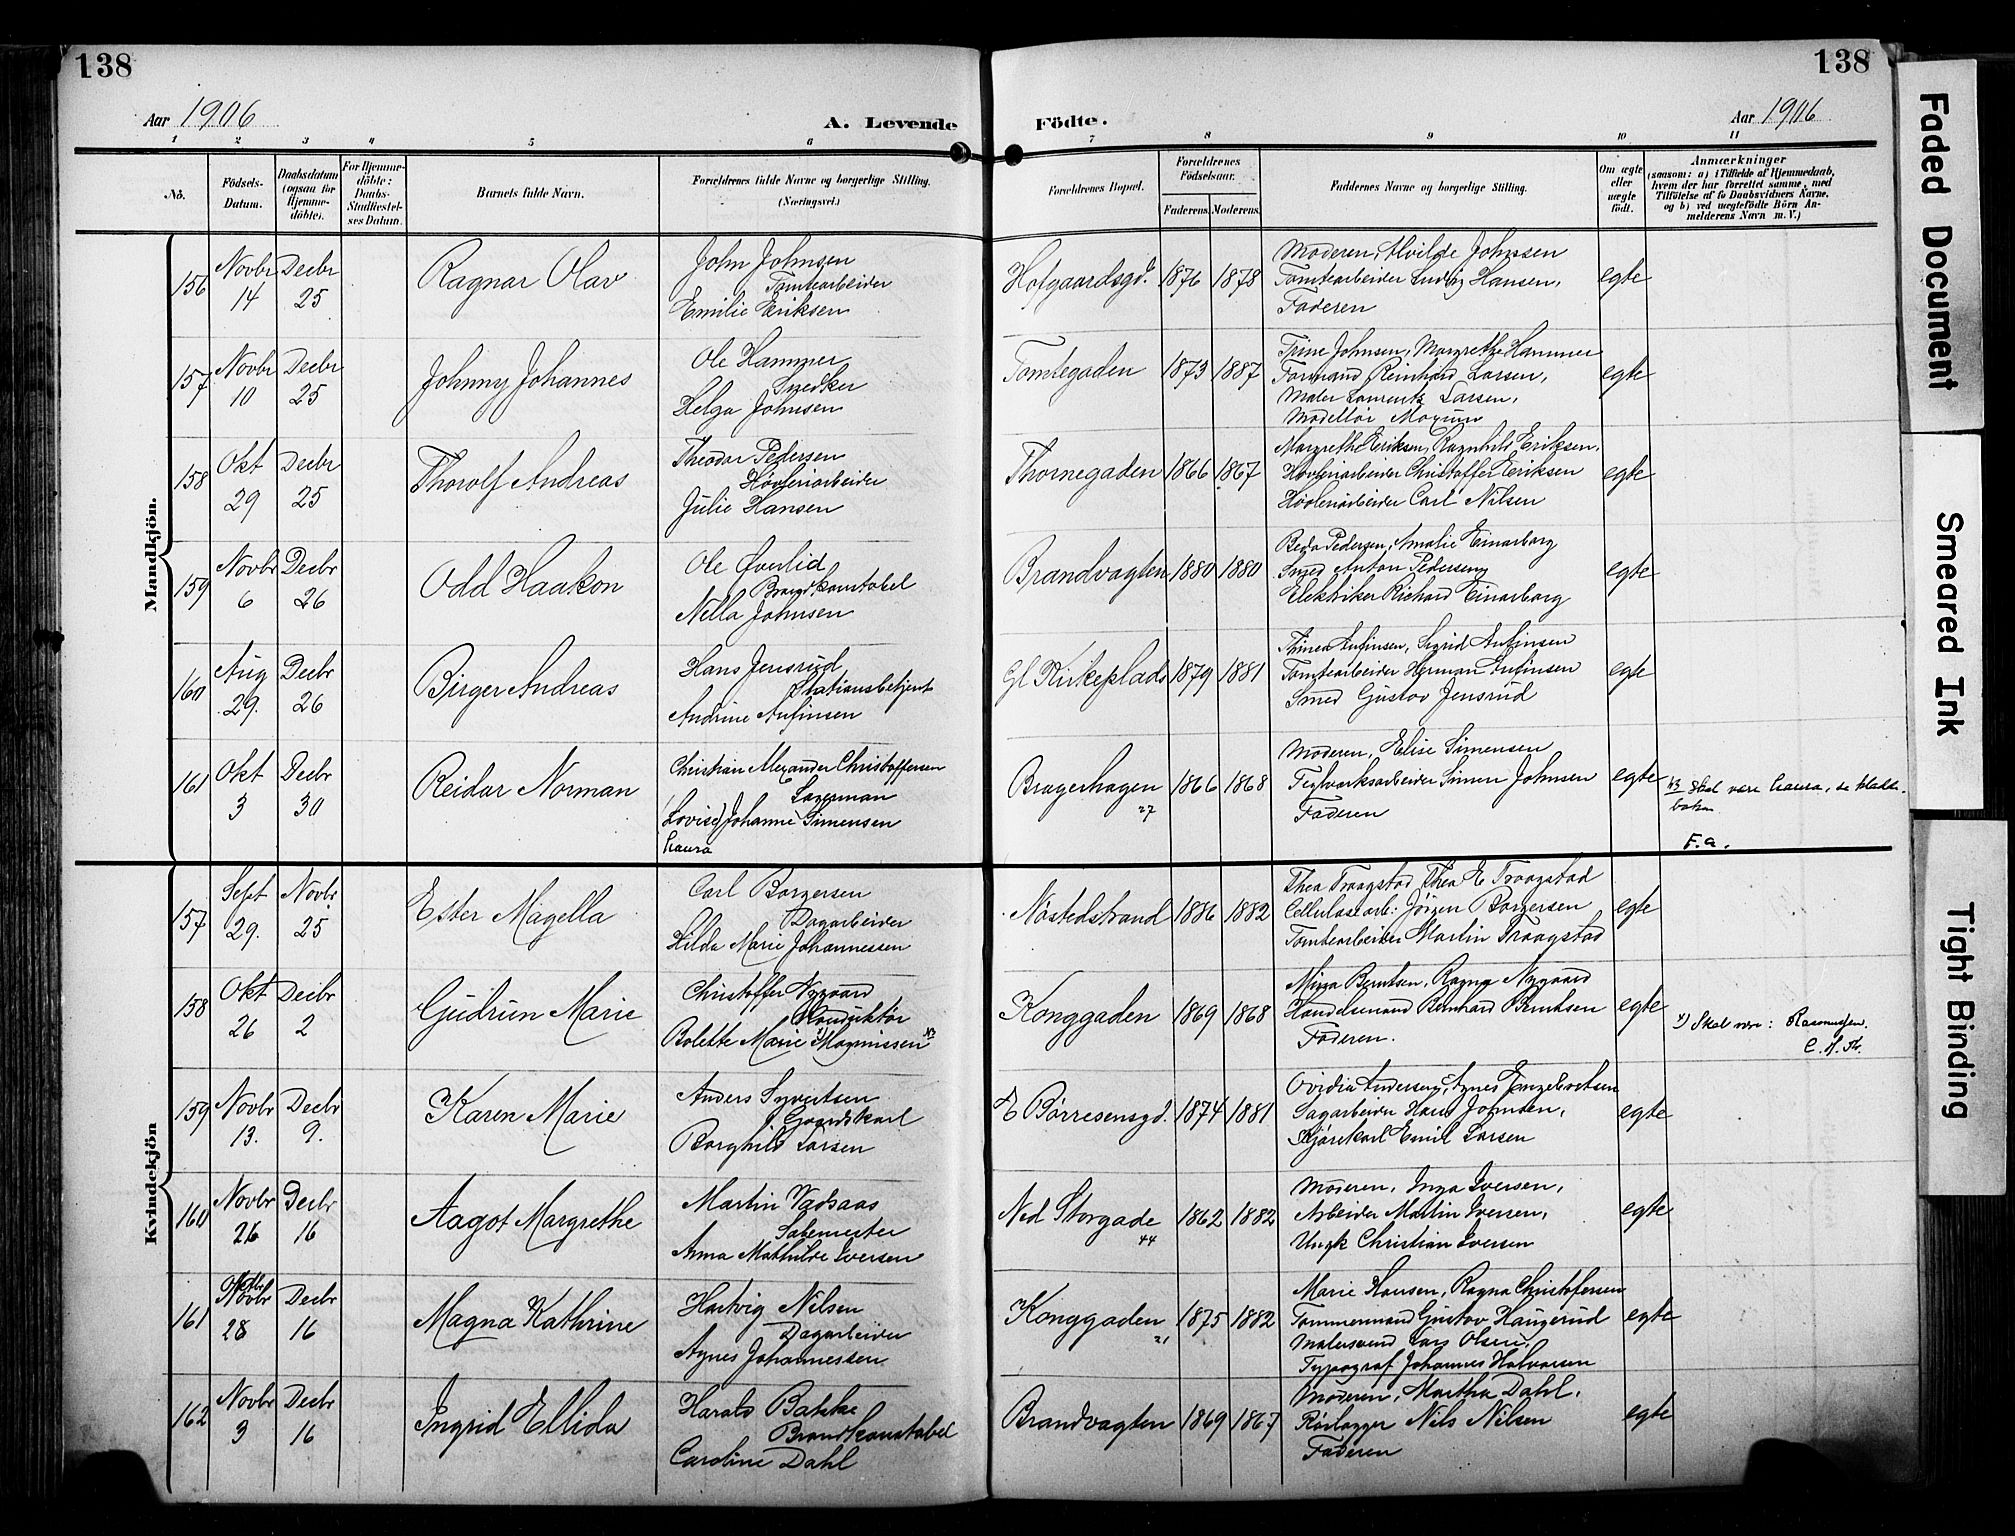 138
138
Aar 1906
A. Levende
Födte.
Aar 1906
1 2 3 4 5 6 7 8 9 10 11
No.
Födsels-
Datum.
Daabsdatum
(ogsaa for
Hjemme-
döbte).
For Hjemme-
döbte:
Daabs-
Stadfæstel-
ses Datum.
Barnets fulde Navn.
Forældrenes fulde Navne og borgerlige Stilling.
(Næringsvei.)
Forældrenes Bopæl.
Forældrenes
Födselsaar.
Faderens. Moderens.
Faddernes Navne og borgerlig Stilling.
Om ægte
eller
uægte
født.
Anmærkninger
(saasom: a) i Tilfælde af Hjemmedaab,
hvem der har forrettet samme, med
Tilföielse af to Daabsvidners Navne,
og b) ved uægtefödte Börn An-
melderens Navn m. V.)
Mandkjön.
156 Novbr 14 Decbr 25 Ragnar Olav
John Johnsen
Tomtearbeider
Emilie Eriksen
Hofgaardsgd. 1876 1878
Moderen, Hvilde Johnsen
Tomtearbeider Ludvig Hansen,
Faderen
egte
157 Novbr 10 Decbr 25 Johnny Johannes
Ole Hammer
Snedker
Helga Johnsen
Tomtegaden 1873 1887
Trine Johnsen, Margrethe Hammer
Formand Reinhard Larsen,
Maler Laurentz Larsen,
egte
158 Okt 29 Decbr 25 Thorolf Andreas
Theodor Pedersen
Høvleriarbeider
Julie Hansen
Thornegaden 1866 1867
Margrethe Eriksen, Ragnhild Eriksen,
Høvleriarbeider Christoffer Eriksen
Høvleriarbeider Carl Nilsen
egte
159 Novbr 6 Decbr 26 Odd Haakon
Ole Øverlid
Brandkonstabel
Nella Johnsen
Brandvagten 1880 1880
Beda Pedersen, Amalie Einarborg
Smed Anton Pedersen,
Elektriker Richard Einarborg
egte
160 Aug 29. Decbr 26 Birger Andreas
Hans Jensrud
Stationsbetjent
Andrine Anfinsen
Gl Kirkeplads 1879 1881
Anfinsen, Sigrid Anfinsen
Tomtearbeider Herman Anfinsen
Smed Gustav Jensrud
egte
161 Okt 3 Decbr 30 Reidar Norman
Christian Alexander Christoffersen
Lagerman
(Lovise) Johanne Simensen
Laura
Bragerhagen 27 1866 1868
Moderen, Elise Simensen
Teglverksarbeider Simen Johnsen
Faderen
egte
NB Skal være Laura, se kladde-
boken
F.a.
Kvindekjön
157 Sept 29. Novbr 25 Ester Magella
Carl Borgersen
Dagarbeider
Hilda Marie Johannessen
Nøstedstrand 1886 1882
Thea Traagstad, Thea E Traagstad
Cellulosearb: Jörgen Borgersen
Tomtearbeider Martin Traagstad
egte
158 Okt 26 Decbr 2 Gudrun Marie
Christoffer Nygaard
Konduktör
Bolette Marie Magnussen
Konggaden 1869 1868
Berntsen, Ragna Nygaard
Handelsmand Bernhard Berntsen
Faderen.
egte
Skal være: Rasmussen.
159 Novbr 13. Decbr 9. Karen Marie
Anders Syvertsen
Gaardskarl
Borghild Larsen
E Børresensgd. 1874 1881
Ovidia Andersen, Agnes Engebretsen
Sagarbeider Hans Johnsen,
Kjørekarl Emil Larsen
egte
160 Novbr 26 Decbr 16 Aagot Margrethe
Martin Vadsaas
Anna Mathilde Iversen
Ned Storgade 44 1862 1882
Moderen, Inga Iversen,
Arbeider Martin Iversen,
Ungk Christian Iversen
egte
161 Novbr Oktbr 28 Decbr 16 Magna Kathrine
Hartvig Nilsen
Dagarbeider
Agnes Johannessen
Konggaden 21 1875 1882
Marie Hansen, Ragna Christofersen
Tømmermand Gustav Haugerud
Malersvend Lars Olsen,
Typograf Johannes Halvorsen
egte
162 Novbr 3 Decbr 16 Ingrid Ellida
Harald Bakke
Brandkonstabel
Caroline Dahl
Brandvagten 1869 1867
Moderen, Martha Dahl,
Rörlægger Nils Nilsen
Faderen
egte
Faded Document
Smeared Ink
Tight Binding